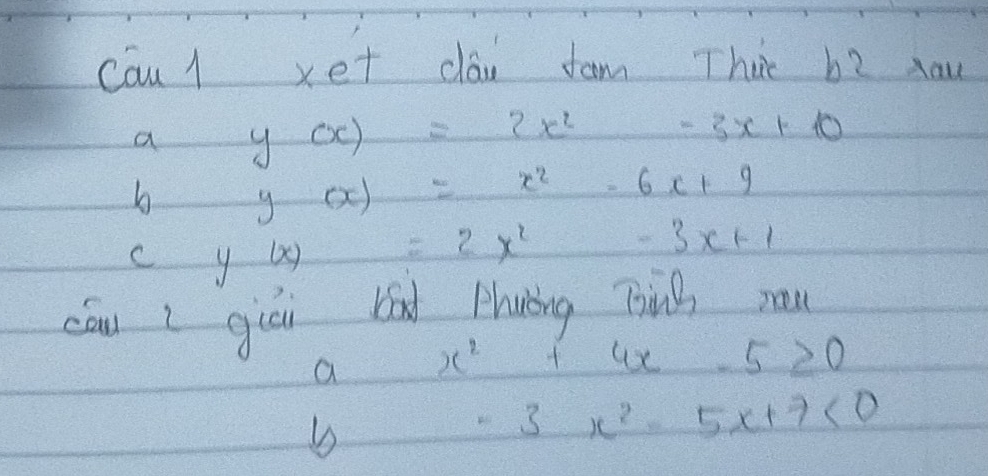 Câu 1 xét dấu tam Thức b2 sau
a y (x) = 2x² - 3x + 10
b y (x) = x² - 6x + 9
c y (x) = 2x² - 3x + 1
câu 2 giải bất Phương Trình sau
a x² + 4x - 5 ≥ 0
b - 3x² - 5x + 7 < 0